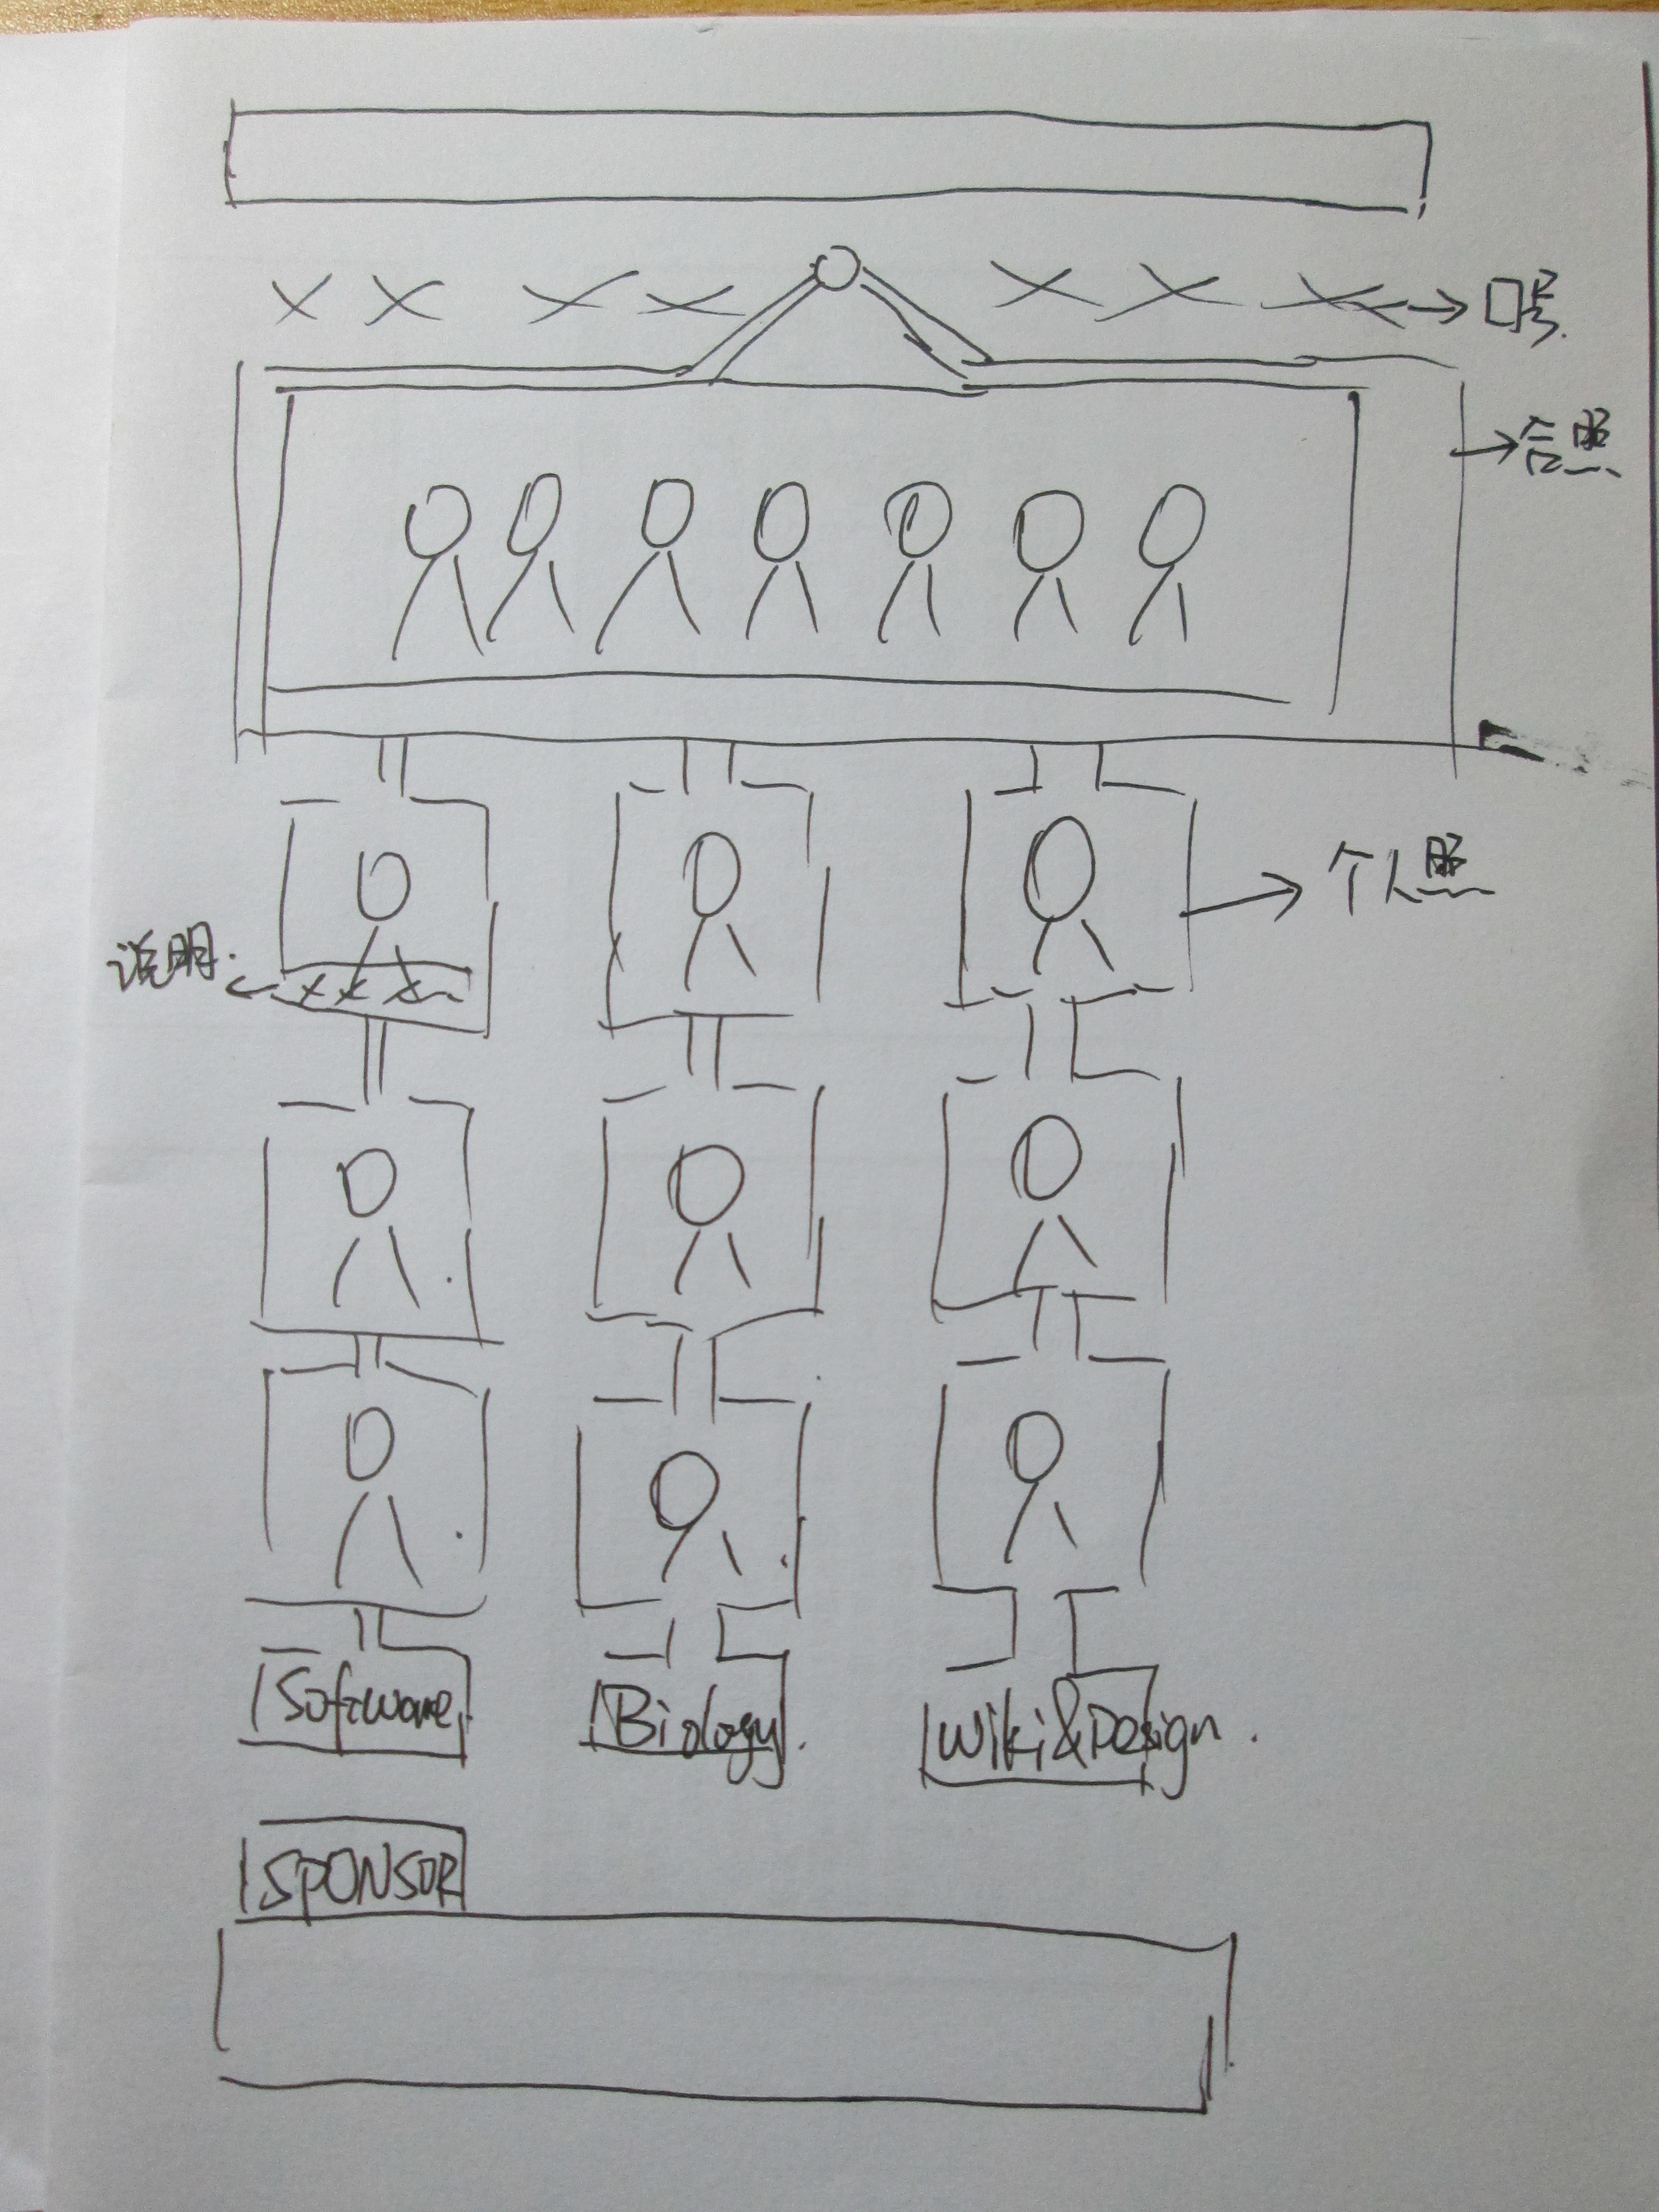 口号
合照
个人照
说明
Software
Biology
Wiki&Design
SPONSOR